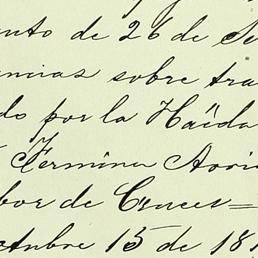 nto de 26 de Se
encias sobre tra
do por la Haïda
Fermina Arri
bor de Cruces=
ctubre 15 de 18